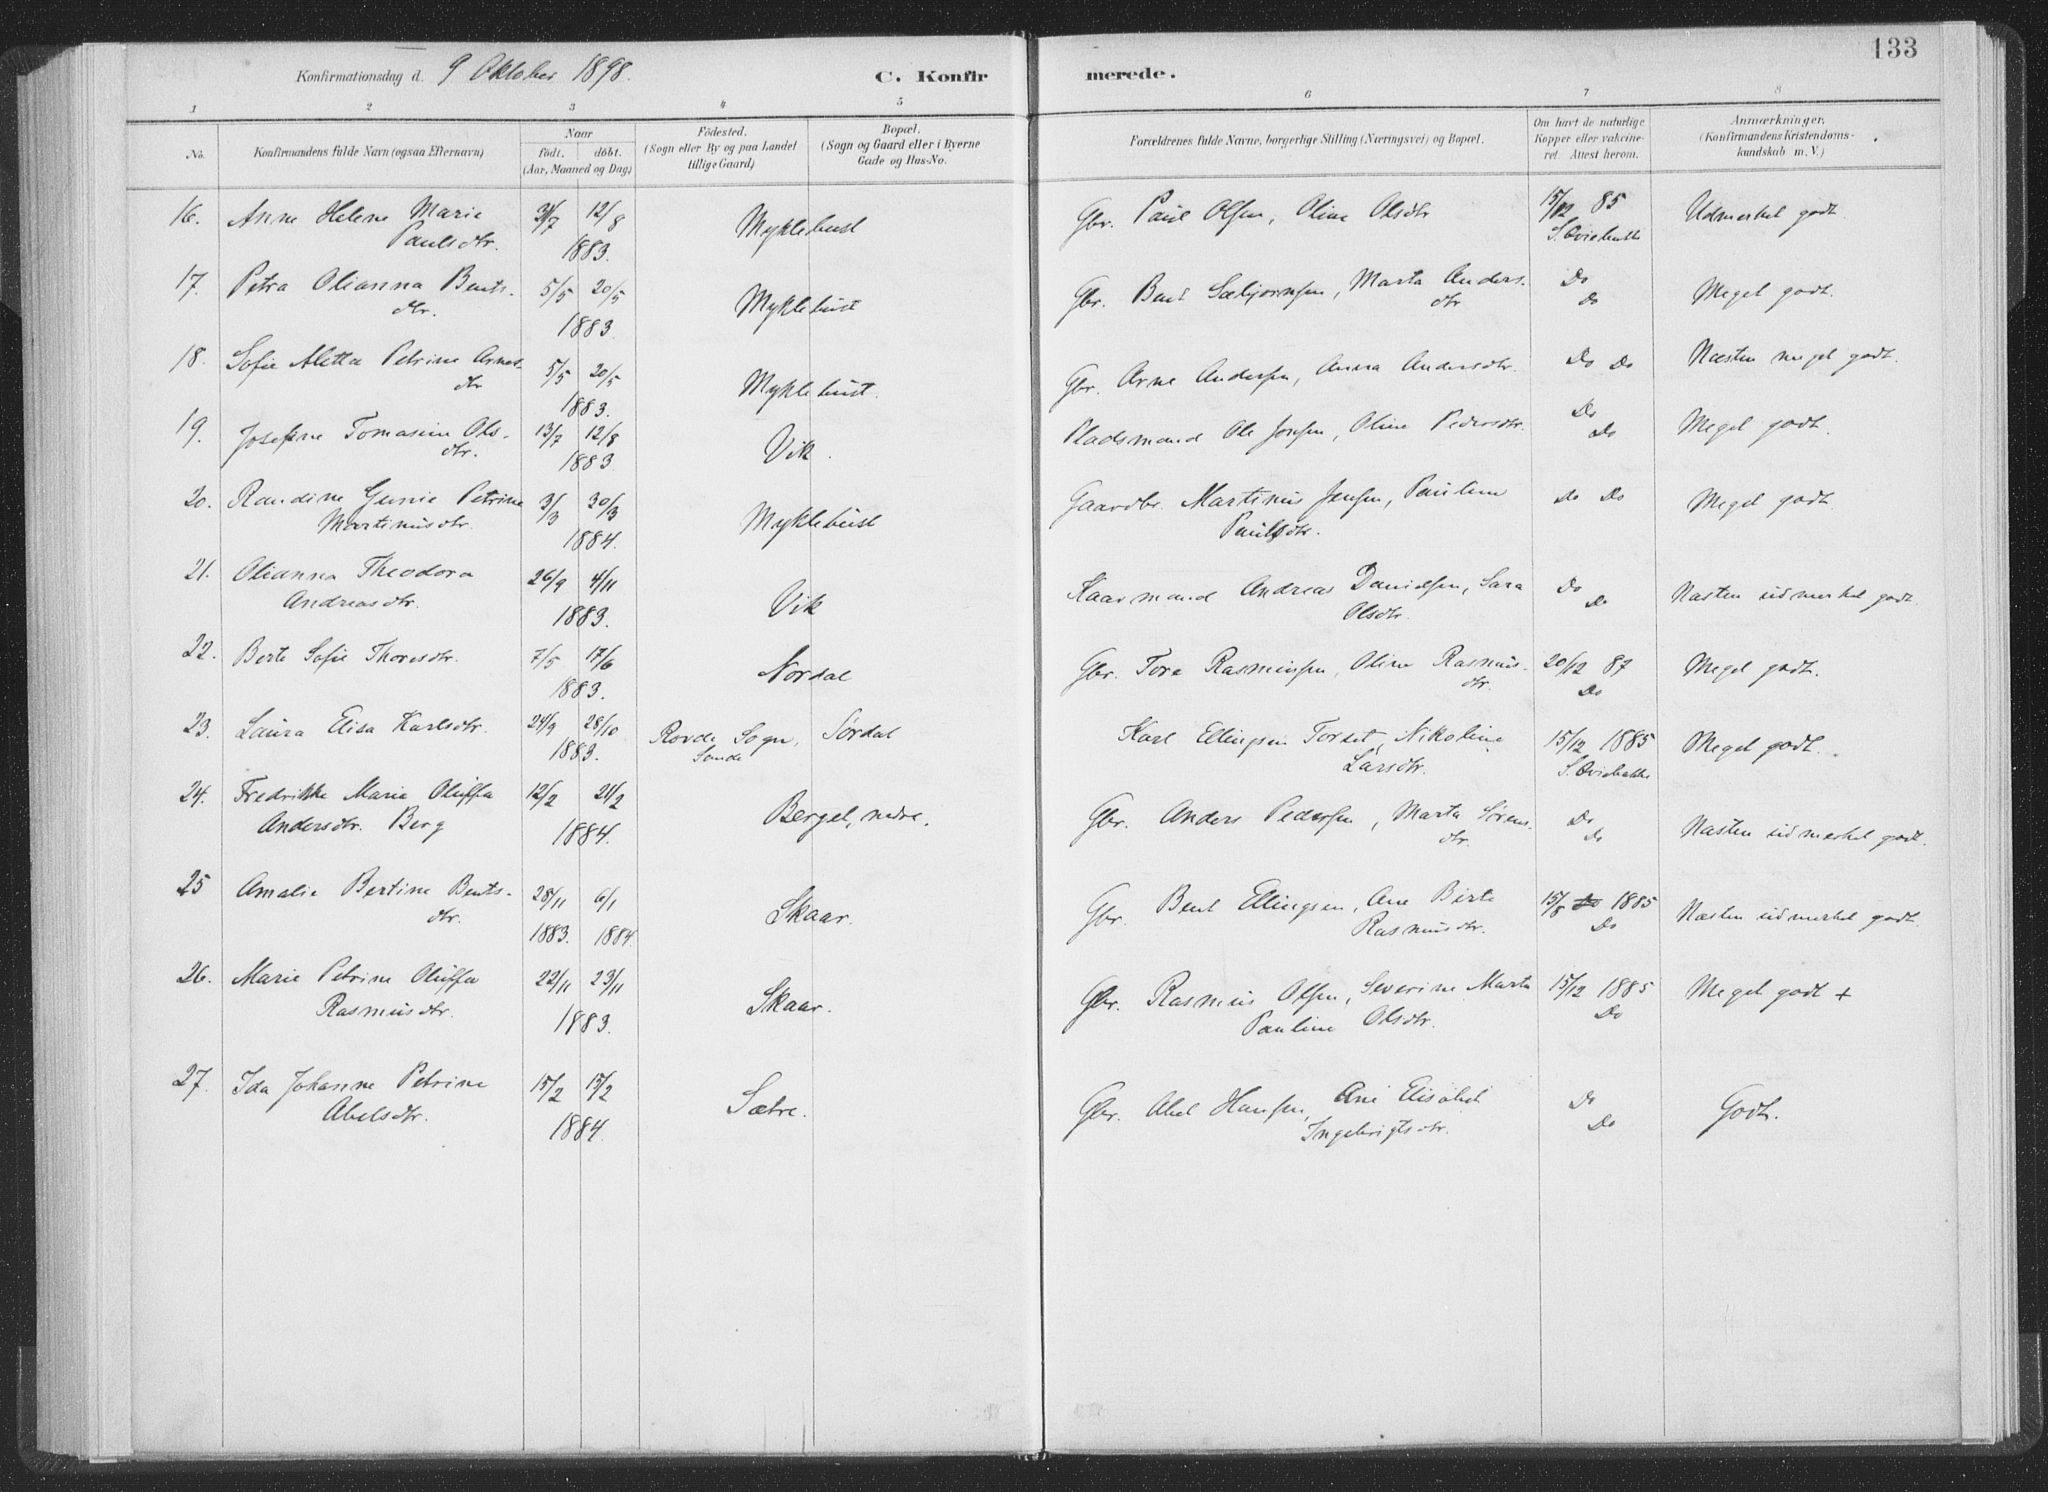 133
Konfirmationsdag d. 9 Oktober 1898.
C. Konfirmerede.
1 2 3 4 5 6 7 8
No.
Konfirmandens fulde Navn (ogsaa Efternavn)
Naar
födt. döbt.
(Aar, Maaned og Dag)
Födested.
(Sogn eller By og paa Landet
tillige Gaard)
Bopæl.
(Sogn og Gaard eller i Byerne
Gade og Hus-No.
Forældrenes fulde Navne, borgerlige Stilling (Næringsvei) og Bopæl.
Om havt de naturlige
Kopper eller vakcine-
ret. Attest herom.
Anmærkninger.
(Konfirmandens Kristendoms-
kundskab m. V.)
16. Anne Helene Marie 31/7 12/8 Myklebust Gbr. Paul Olsen, Oline Olsdtr 15/12 85 Udmerket godt.
Paulsdtr. 1883.
17. Petra Olianna Bents- 5/5 20/5 Myklebust Gbr. Bent Sæbjørnsen, Marta Anders- Do Meget godt.
dtr. 1883. dtr Do
18. Sofie Aletta Petrine Arnes- 5/5 20/5 Myklebust. Gbr. Arne Andersen, Anna Andersdtr. Do Do Næsten meget godt.
dtr 1883.
19. Josefine Tomasine Ols- 13/7 12/8 Vik. Pladsmand Ole Jonsen, Oline Pedersdtr. Do Meget godt.
dtr. 1883. Do
20. Randine Gunie Petrine 3/3 30/3 Myklebust Gaardbr. Martinus Jensen, Pauline Do Do Meget godt.
Martinusdtr. 1884. Paulsdtr.
21. Olianna Theodora 26/9 4/11 Vik Kaarmand Andreas Danielsen, Sara Do Næsten udmerket godt.
Andreasdtr. 1883. Olsdtr. Do
22. Berte Sofie Thoresdtr. 7/5 17/6 Nordal Gbr. Tore Rasmussen, Oline Rasmus- 20/12 87 Meget godt.
1883. dtr. Do
23. Laura Elisa Karlsdtr. 24/9 28/10 Rovde Sogn, Sørdal Karl Ellingsen Torset, Nikoline 15/12 1885 Meget godt.
1883. Sonde Larsdtr.
24. Fredrikke Marie Oluffa 12/2 24/2 Berget, nedre. Gbr. Anders Pedersen, Marta Sørens- Do Næsten udmerket godt.
Andersdtr. Berg 1884. dtr. Do
25 Amalie Bertine Bents- 28/11 6/1 Skaar. Gbr. Bent Ellingsen, Ane Berte 15/8 Do 1885 Næsten udmerket godt
dtr. 1883. 1884. Rasmusdtr. Do
26. Marie Petrine Oluffa 22/11 23/11 Skaar. Gbr. Rasmus Olsen, Severine Marta 15/12 1885 Meget godt +
Rasmusdtr. 1883. Pauline Olsdtr. Do
27. Ida Johanne Petrine 15/2 15/2 Sætre. Gbr. Abel Hansen, Ane Elisabet Do Godt.
Abelsdtr. 1884. Ingebrigtsdtr. Do